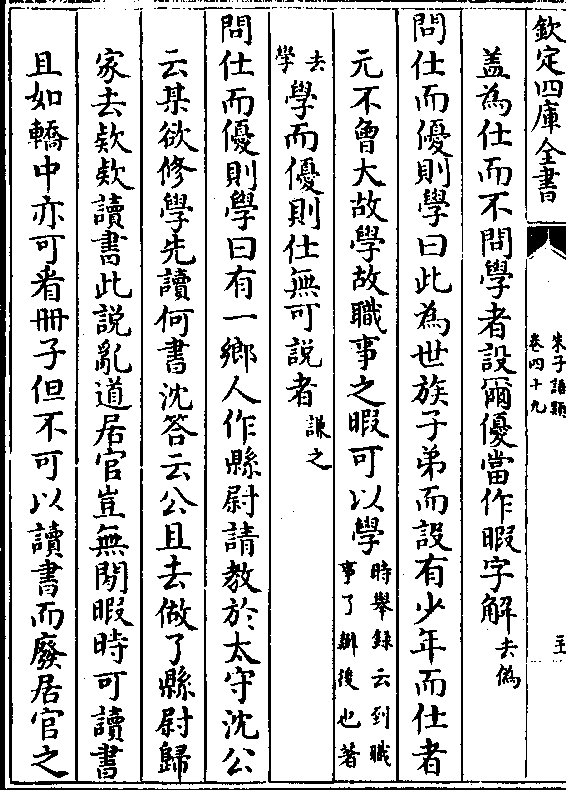 欽定四庫全書
朱子語類
卷四十九
盖為仕而不問學者設爾優當作暇字解去偽
問仕而優則學曰此為世族子弟而設有少年而仕者
元不曾大故學故職事之暇可以學時舉録云到職事了辦後也著去學
學而優則仕無可說者謙之
問仕而優則學曰有一鄉人作縣尉請教於太守沈公
云某欲修學先讀何書沈答云公且去做了縣尉歸
家去欵欵讀書此說亂道居官豈無閑暇時可讀書
且如轎中亦可看冊子但不可以讀書而廢居官之